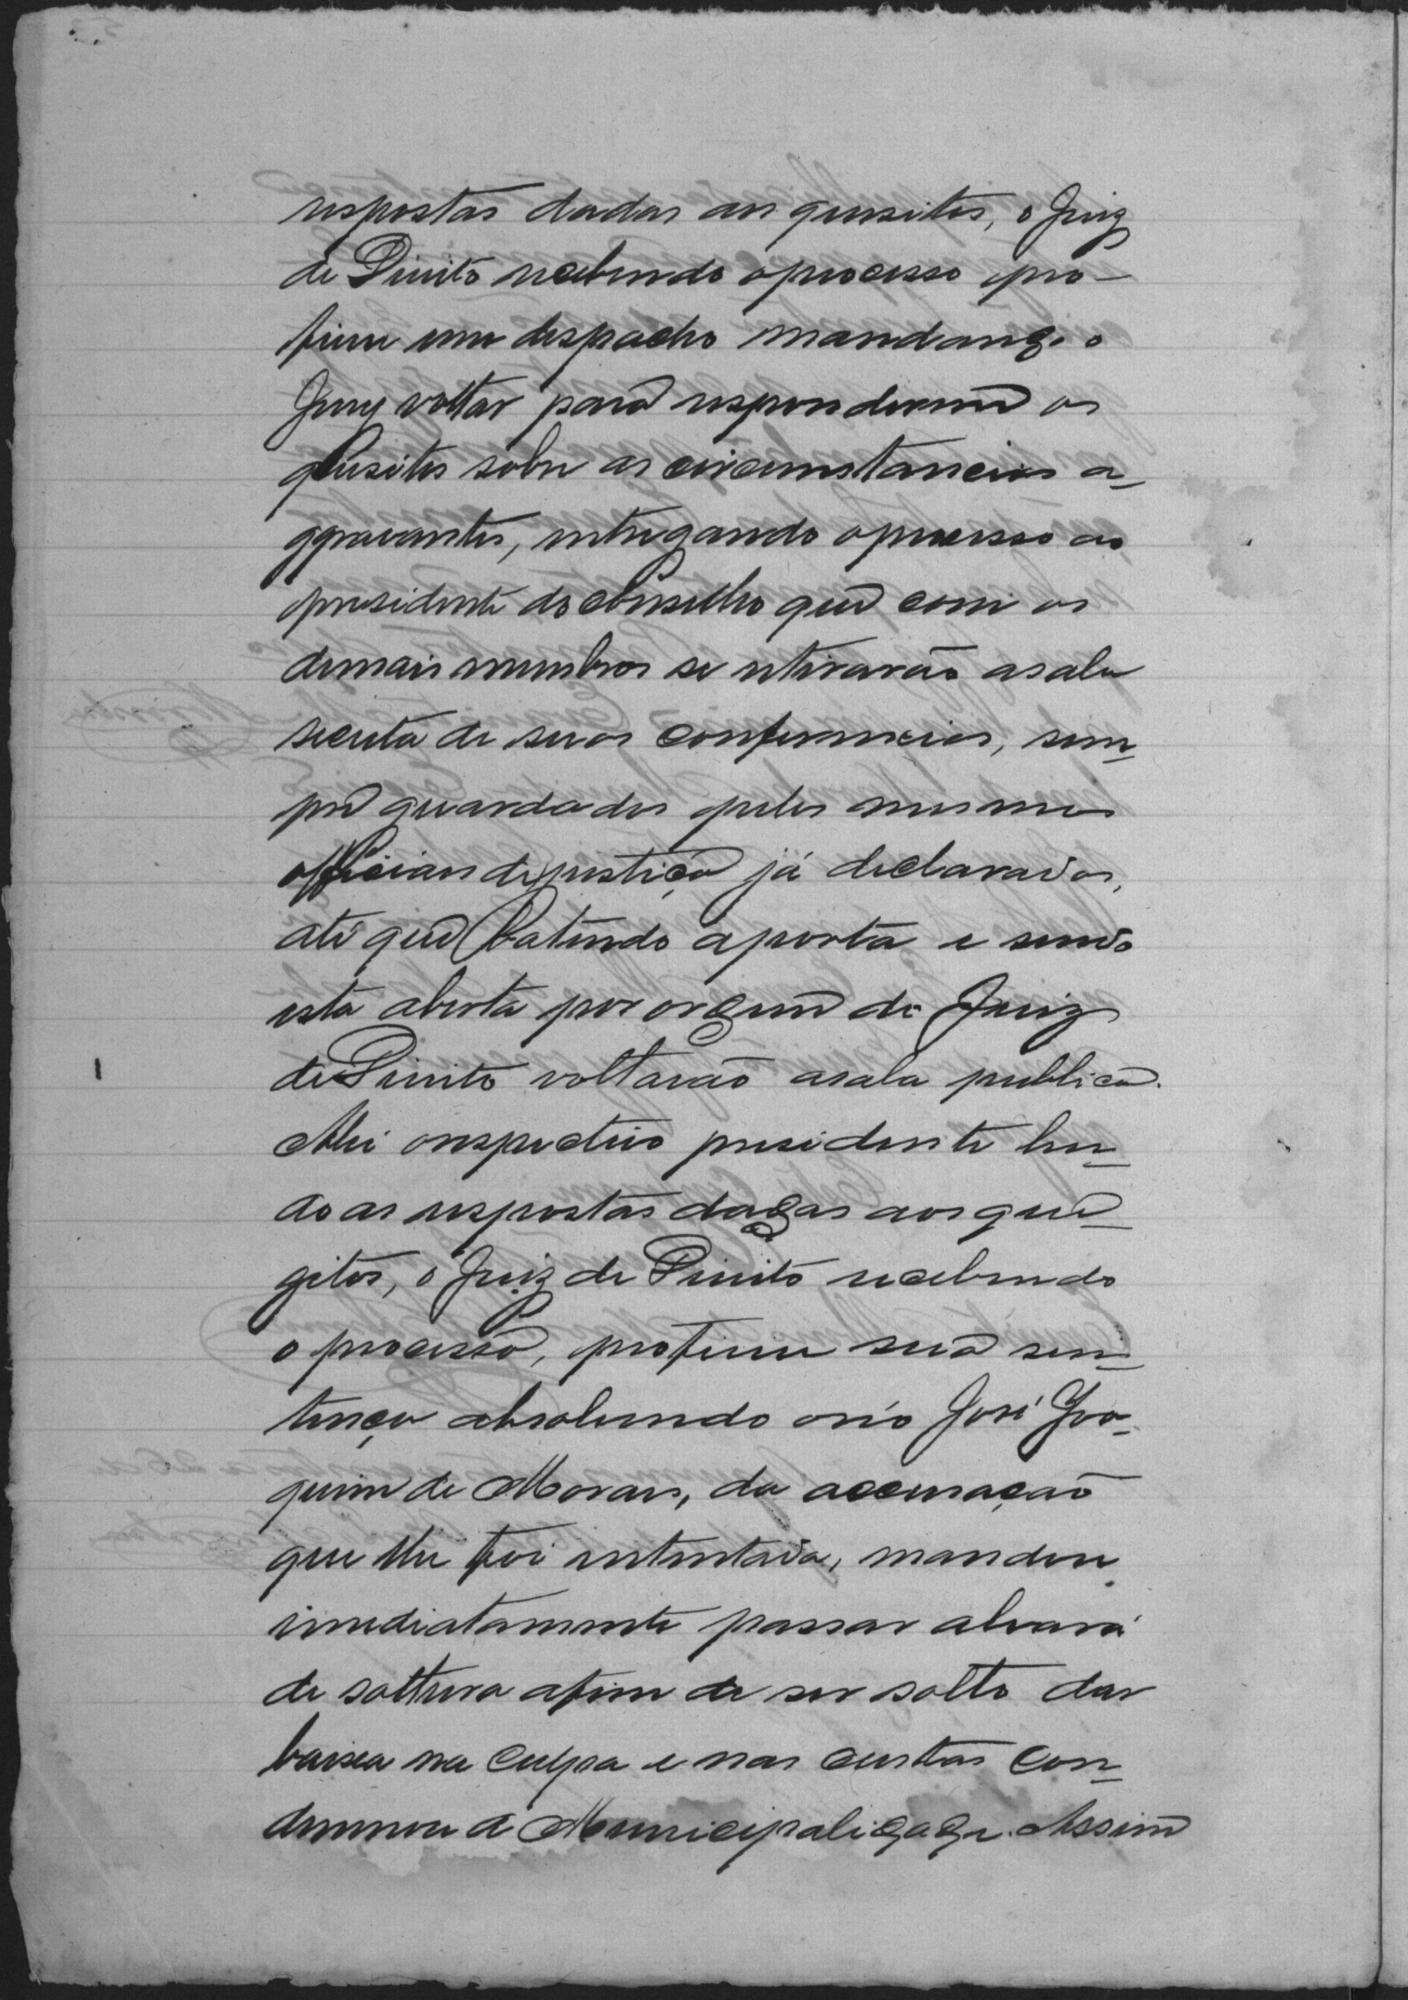 respostas dadas aos quesitos, o Juiz
de Direito recebendo o processo pro-
feriu um despacho mandando o
Jury voltar para responderem os
quisitos sobre as circumstancias a-
ggravantes, entregando o processo ao
presidente do Conselho que com os
demais membros se retirarão a sala
secreta de suas conferencias, sem-
pre guardados pelos mesmos
officiaes de justiça já declarados,
até que batendo a porta e sendo
esta aberta por ordem do Juiz
de Direito voltarão a sala publica.
Ahi o respectivo presidente len-
do as respostas dadas aos que-
zitos, o Juiz de Direito recebendo
o processo, proferiu sua sen-
tença absolvendo o réo José Joa-
quim de Moraes, da accusação
que lhe foi intentada, mandou
imediatamente passar alvará
de soltura afim de ser solto dar
baixa na culpa e nas custas con-
demnou a Municipalidade. Assim